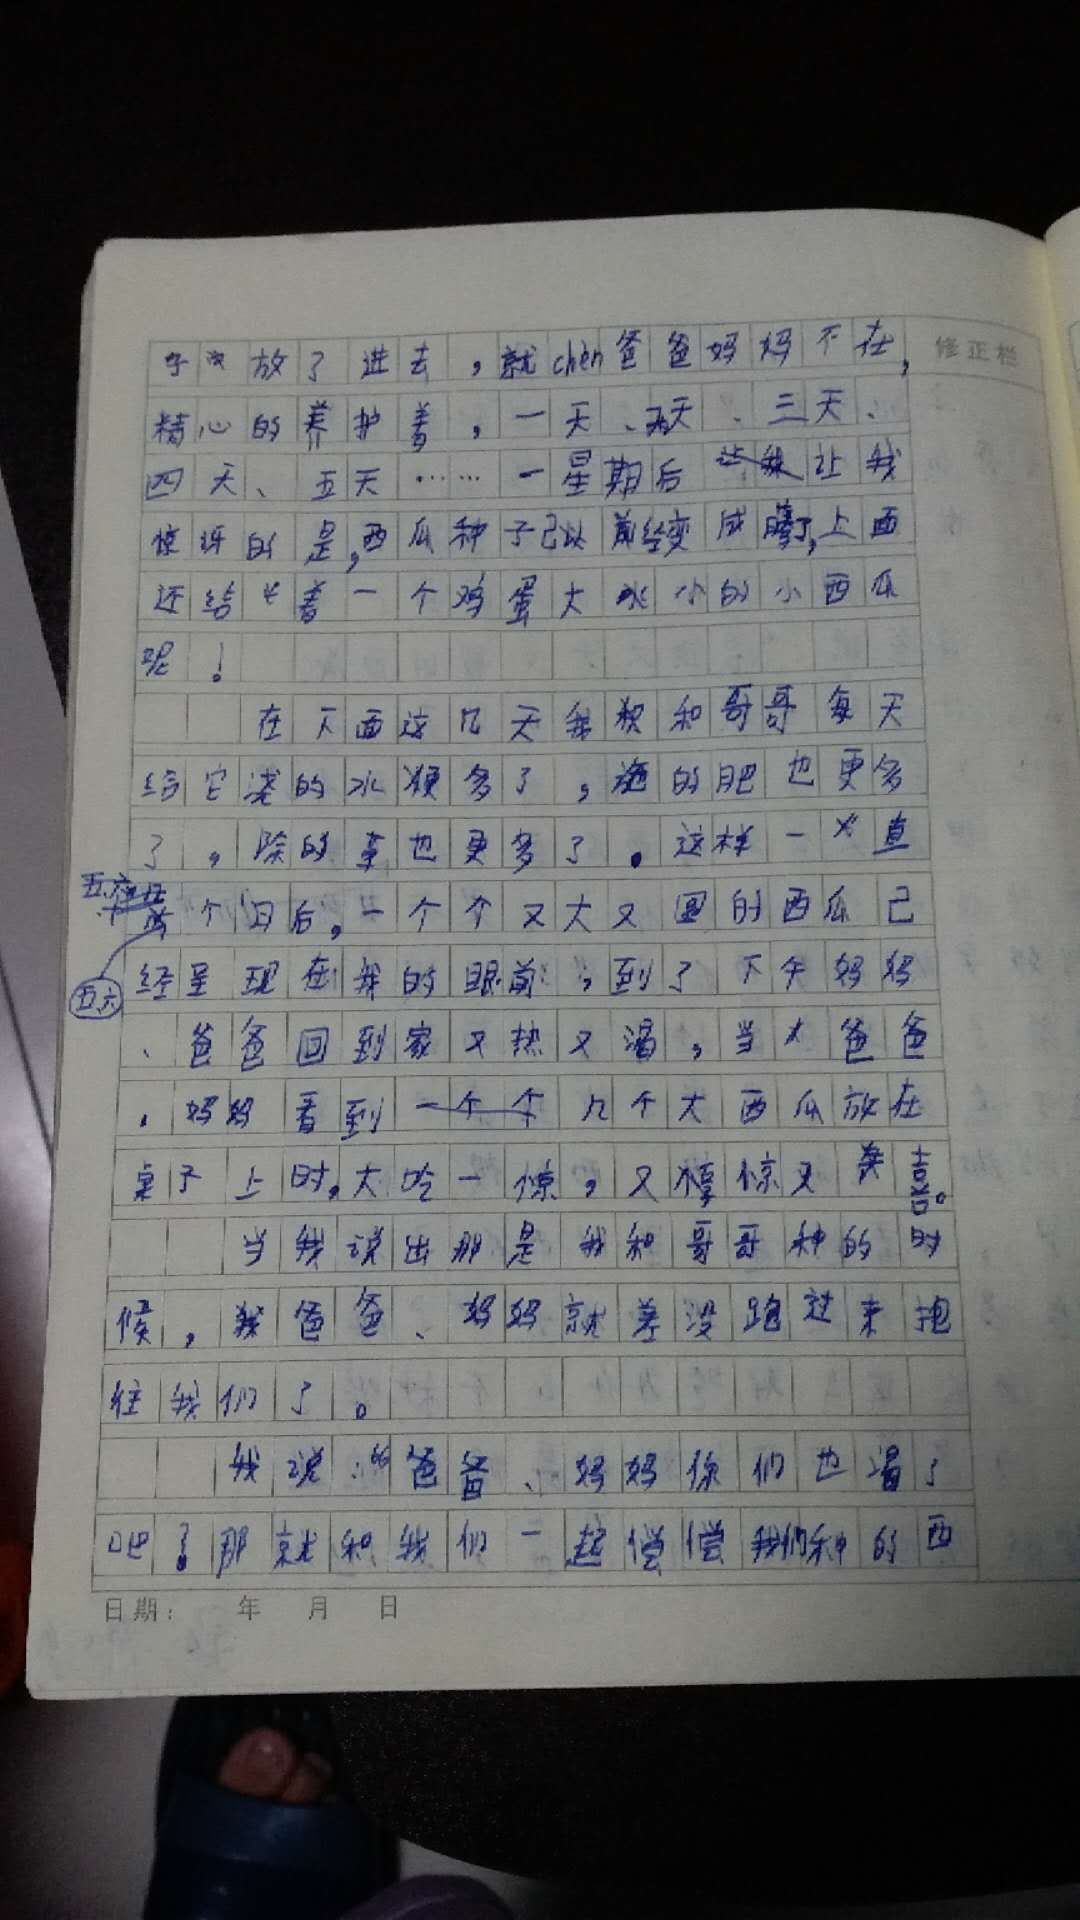 子 放了进去，就chèn爸爸妈妈不在，
修正栏
精心的养护着，一天、两天、三天、
四天、五天……一星期后 让我
惊讶的是，西瓜种子已以前经变成 了，上面
还结 着一个鸡蛋大 小的小西瓜
呢！
在下面这几天我 和哥哥每天
给它浇的水 多了，施的肥也更多
了，除的草也更多了。这样一 直
五六
个 日后，一个个又大又圆的西瓜已
五六
经呈现在我的眼前，到了下午妈妈
、爸爸回到家又热又渴，当 爸爸
、妈妈看到一个个几个大西瓜放在
桌子上时，大吃一惊，又 惊又 喜。
当我说出那是我和哥哥种的时
候，我爸爸、妈妈就差没跑过来抱
住我们了。
我说：“爸爸、妈妈你们也渴了
吧？那就和我们一起尝尝我们种的西
日期： 年 月 日